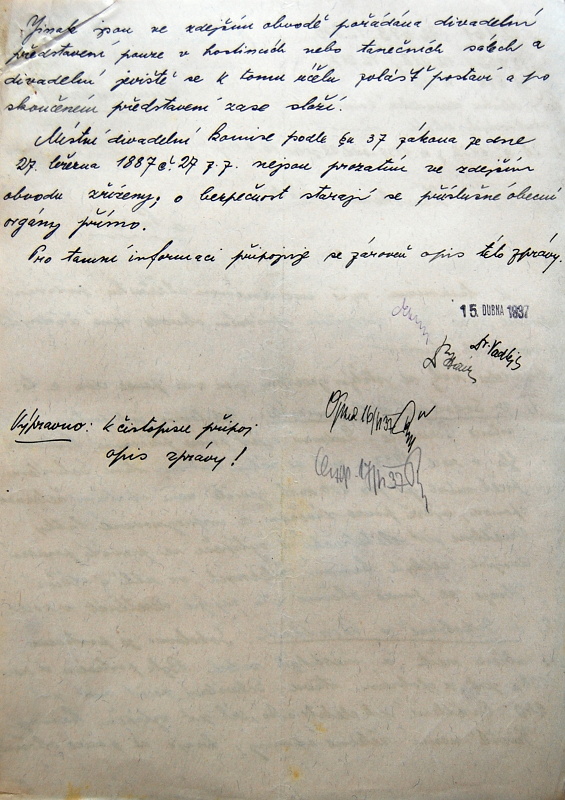 Jinak jsou ve zdejším obvodě pořádána divadelní
představení pouze v hostincích nebo tanečních sálech a
divadelní jeviště se k tomu účelu zvlášť postaví a po
skončeném představení zase složí.
Místní divadelní komise podle §u 37 zákona ze dne
27. března 1887 č. 27 z.z. nejsou prozatím ve zdejším
obvodu zřízeny; o bezpečnost starají se příslušné obecní
orgány přímo.
Pro tamní informaci připojuje se zároveň opis této zprávy.
15. DUBNA 1937
Dr. Vadlejš
Výpravno: k čistopisu připoj
opis zprávy!
Opsal 16/IV 37
17/IV 37